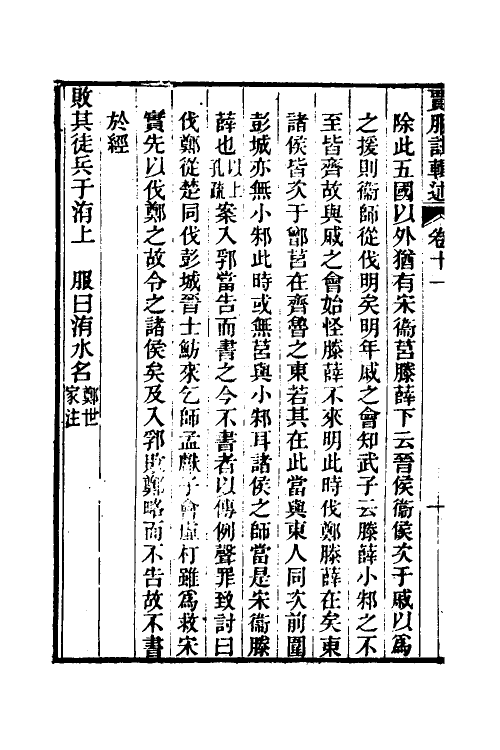 賈服註輯述 卷十一
除此五國以外猶有宋衞莒滕薛下云晉侯衞侯次于戚以爲
之援則衞師從伐明矣明年戚之會知武子云滕薛小邾之不
至皆齊故與戚之會始怪滕薛不來明此時伐鄭滕薛在矣東
諸侯皆次于鄫莒在齊魯之東若其在此當與東人同次前圍
彭城亦無小邾此時或無莒與小邾耳諸侯之師當是宋衞滕
薛也以上孔疏案入郛當告而書之今不書者以傳例聲罪致討曰
伐鄭從楚同伐彭城晉士魴來乞師孟獻子會虛朾雖爲救宋
實先以伐鄭之故令之諸侯矣及入郛敗鄭略而不告故不書
於經
敗其徒兵于洧上 服曰洧水名鄭世家注